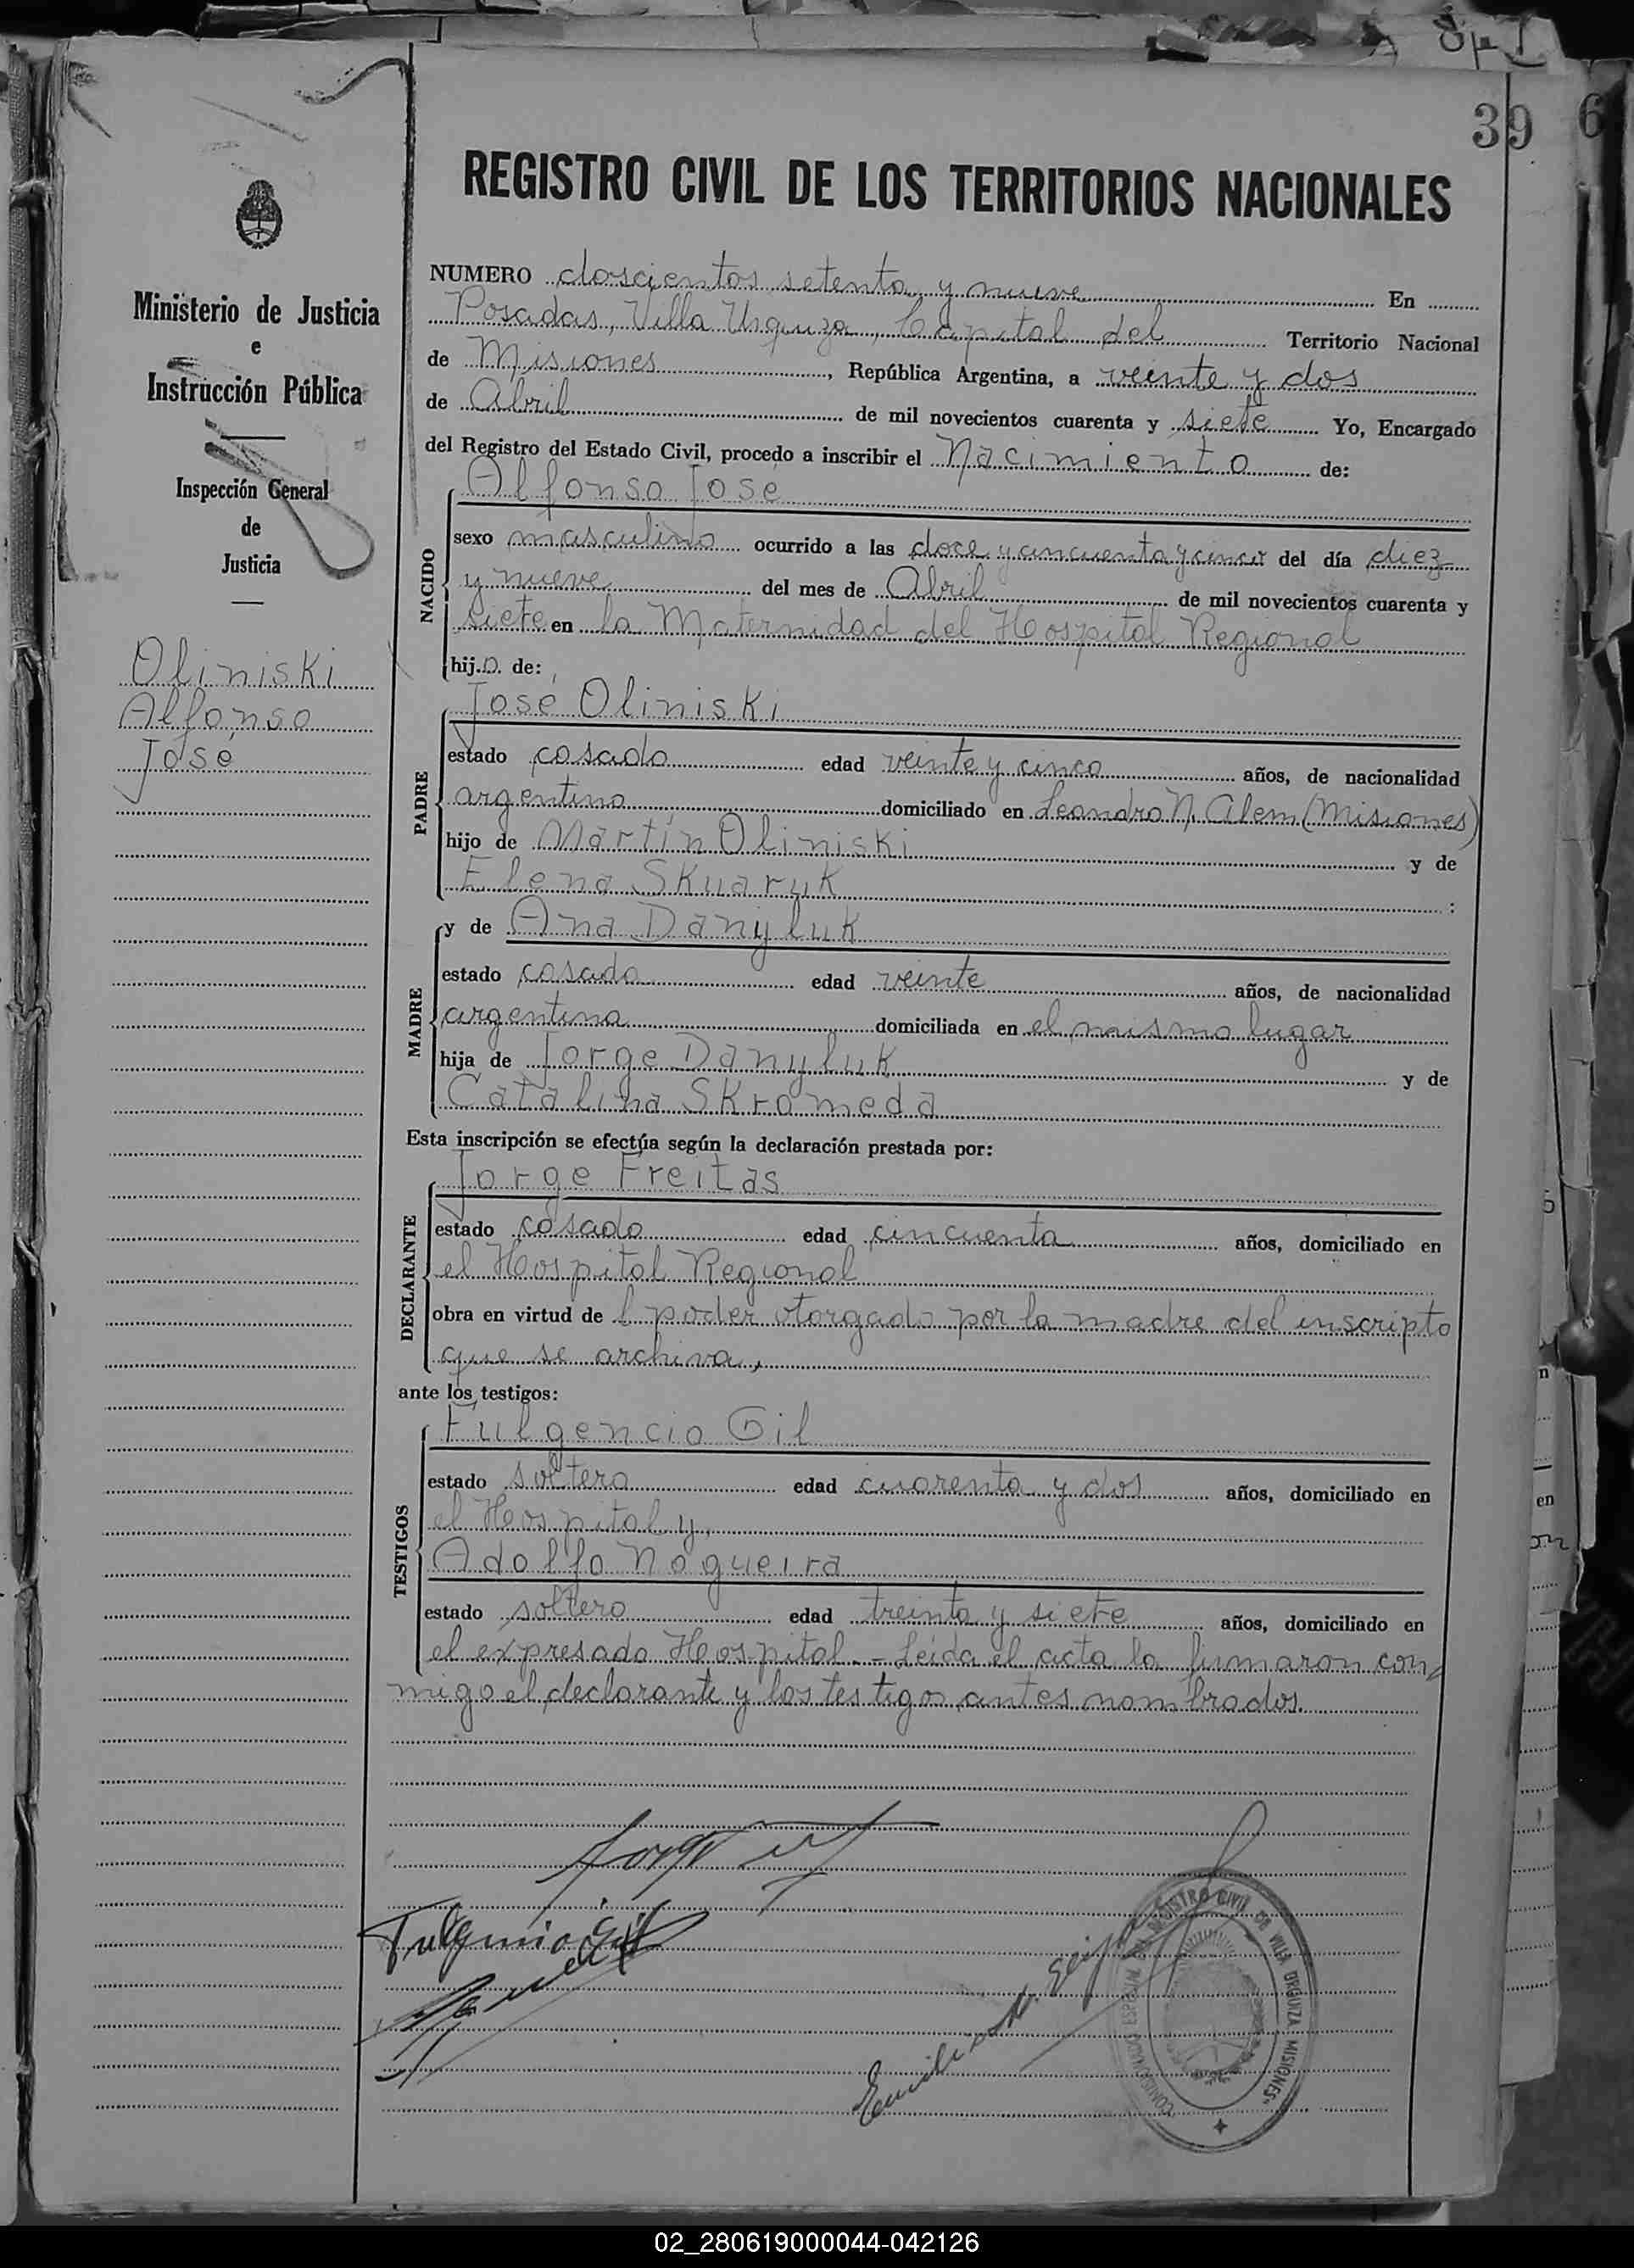 39
6
REGISTRO CIVIL DE LOS TERRITORIOS NACIONALES
Ministerio de Justicia
e
Instrucción Pública
Inspección General
de
Justicia
Oliniski
Alfonso
José
NUMERO doscientos setenta y nueve En
Posadas, Villa Urquiza, Capital del Territorio Nacional
de Misiones, República Argentina, a veinte y dos
de Abril de mil novecientos cuarenta y siete Yo, Encargado
del Registro del Estado Civil, procedo a inscribir el Nacimiento de:
NACIDO
Alfonso José
sexo masculino ocurrido a las doce y cincuenta y cinco del día diez
y nueve del mes de Abril de mil novecientos cuarenta y
siete en la Maternidad del Hospital Regional
hijo de:
PADRE
José Oliniski
estado casado edad veinte y cinco años, de nacionalidad
argentino domiciliado en Leandro N. Alem (Misiones)
hijo de Martín Oliniski y de
Elena Skuaruk :
MADRE
y de Ana Danyluk
estado casada edad veinte años, de nacionalidad
argentina domiciliada en el mismo lugar
hija de Jorge Danyluk y de
Catalina Skromeda
Esta inscripción se efectúa según la declaración prestada por:
DECLARANTE
Jorge Freitas
estado casado edad cincuenta años, domiciliado en
el Hospital Regional
obra en virtud de l poder otorgado por la madre del inscripto
que se archiva,
ante los testigos:
TESTIGOS
Fulgencio Gil
estado soltero edad cuarenta y dos años, domiciliado en
el Hospital y,
Adolfo Nogueira
estado soltero edad treinta y siete años, domiciliado en
el expresado Hospital.- Leída el acta la firmaron con
migo el declarante y los testigos antes nombrados.
REGISTRO CIVIL DE VILLA URQUIZA MISIONES
02_280619000044-042126